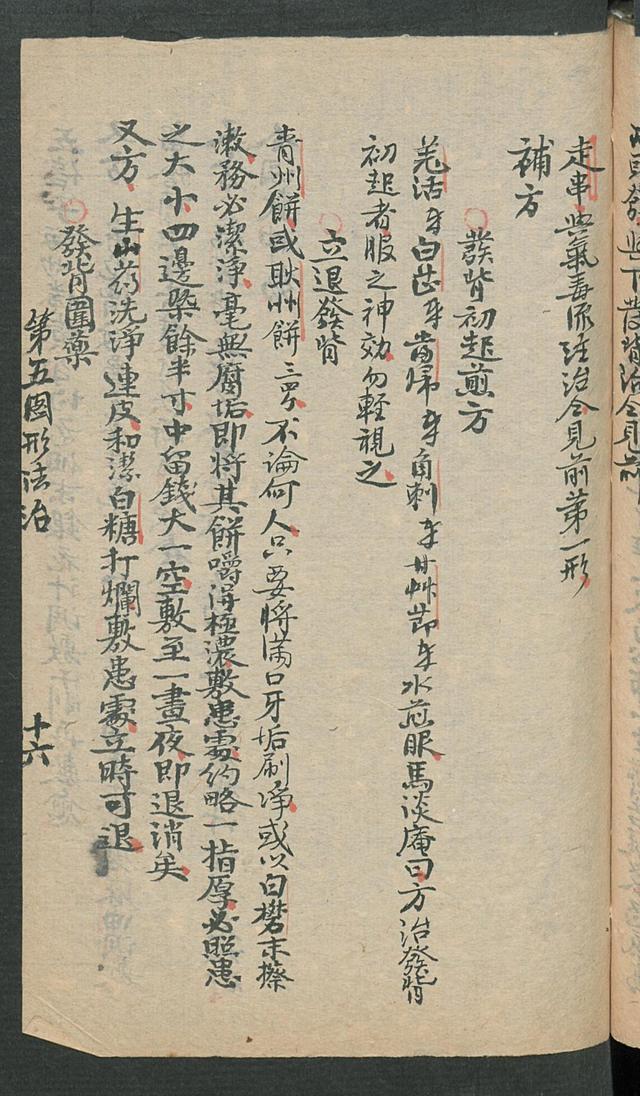 走串與氣毒流注治仝見前第一形
補方
發背初起煎方
羌活 白芷 當歸 角刺 甘艸節 水煎服馬談庵曰方治發背
初起者服之神効勿輕視之
立退發背
青州餅或耿州餅三 不論何人只要將滿口牙垢刷淨或以白礬末擦
漱務必潔淨毫無廚垢即將其餅嚼得極濃敷患處約略一指厚必照患
之大小四邊 餘半寸中留錢大一空敷至一晝夜即退消矣
又方 生山葯洗淨連皮和潔白糖打爛敷患處立時可退
發背圍藥
第五圖形法治 十六